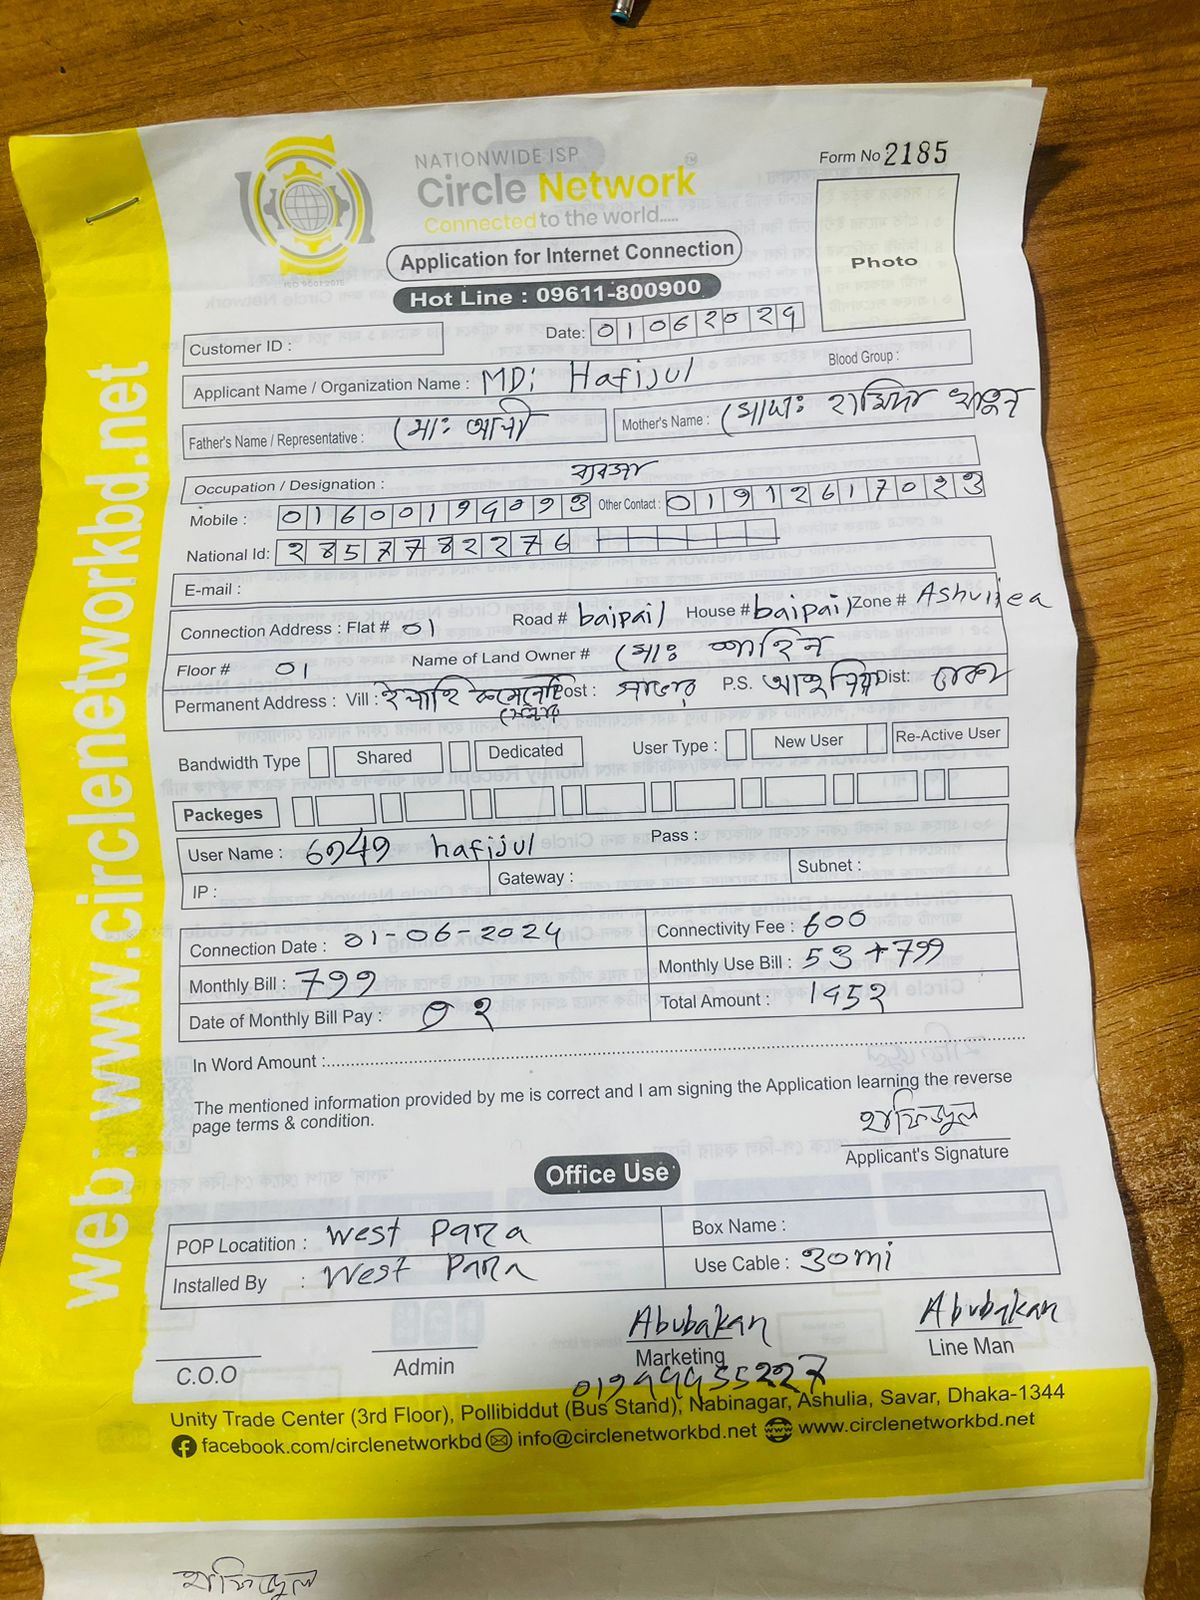 NATIONWIDE ISP
Circle Network™
Connected to the world.....
Form No 2185
Application for Internet Connection
Photo
Hot Line : 09611-800900
ISO 9001:2015
Date: 01062024
Customer ID :
Blood Group :
Applicant Name / Organization Name : MD: Hafijul
Father's Name / Representative : মোঃ আলী
Mother's Name : মোছাঃ হামিদা খাতুন
Occupation / Designation : ব্যবসা
Mobile : Other Contact : 01912617023
National Id:
E-mail :
Connection Address : Flat # 01 Road # baipail House # baipail Zone #
Floor # 01 Name of Land Owner # মোঃ শাহিন
Permanent Address : Vill : Post : সাভার P.S. আশুলিয়া Dist: ঢাকা
Bandwidth Type Shared Dedicated User Type : New User Re-Active User
Packeges
User Name : hafijul Pass :
IP : Gateway : Subnet :
Connection Date : 01-06-2024 Connectivity Fee : 600
Monthly Bill : 799 Monthly Use Bill : 53+799
Date of Monthly Bill Pay : Total Amount : 1452
In Word Amount :
The mentioned information provided by me is correct and I am signing the Application learning the reverse
page terms & condition.
হাফিজুল
Applicant's Signature
Office Use
POP Locatition : West Para Box Name :
Installed By : West Para Use Cable : 30mi
Abubakar Abubakar
C.O.O Admin Marketing Line Man
Unity Trade Center (3rd Floor), Pollibiddut (Bus Stand), Nabinagar, Ashulia, Savar, Dhaka-1344
facebook.com/circlenetworkbd info@circlenetworkbd.net www.circlenetworkbd.net
web: www.circlenetworkbd.net
হাফিজুল